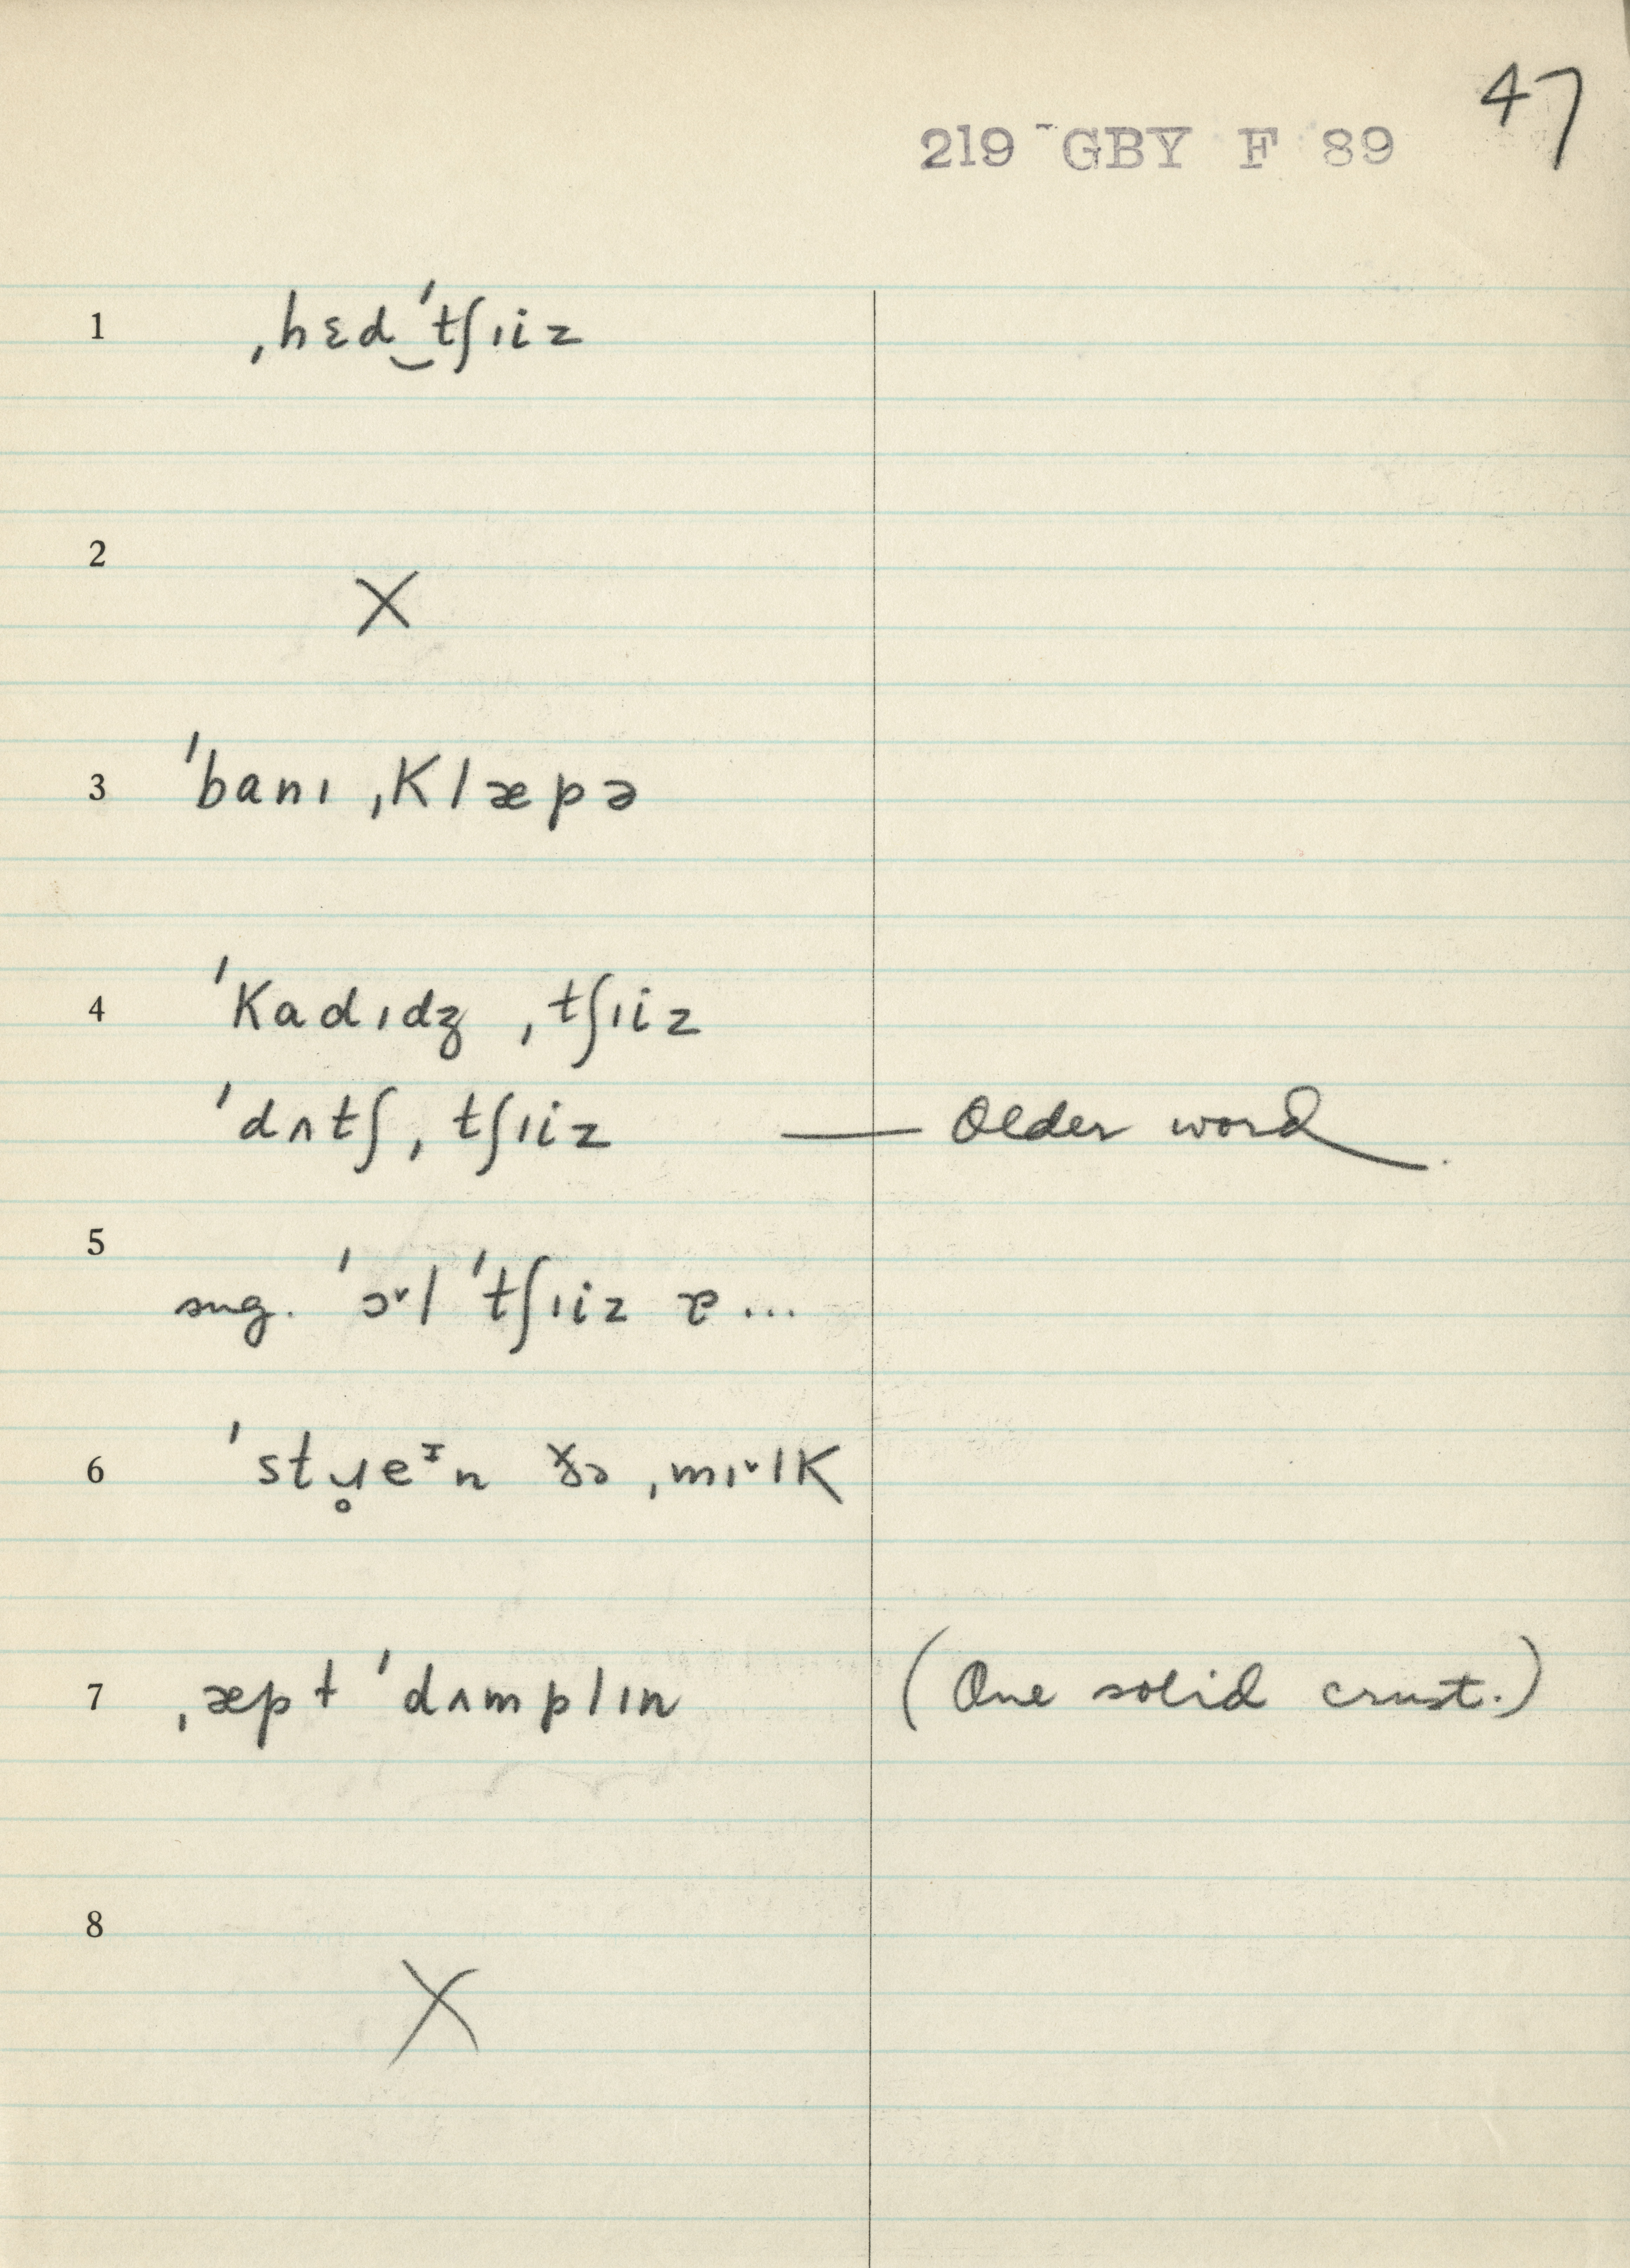 47
219 GBY F 89
1 ˌhɛd‿ˈtʃɪiz
2 X
3 ˈbanɪ ˌklæpə
4 ˈkadɪdʒ ˌtʃɪiz
ˈdʌtʃ ˌtʃɪiz — Older word.
5
sug. ˈɔ˅l ˈtʃɪiz ɐ...
6 ˈstɹ̥eᶦn ðə ˌmɪ˅lk
7 ˌæpɫ ˈdʌmplɪn (One solid crust.)
8 X